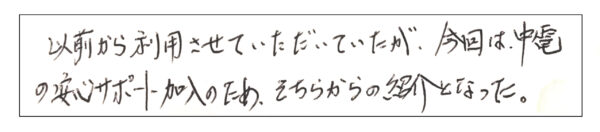 以前から利用させていただいていたが、今回は、中電
の安心サポート加入のため、そちらからの紹介となった。